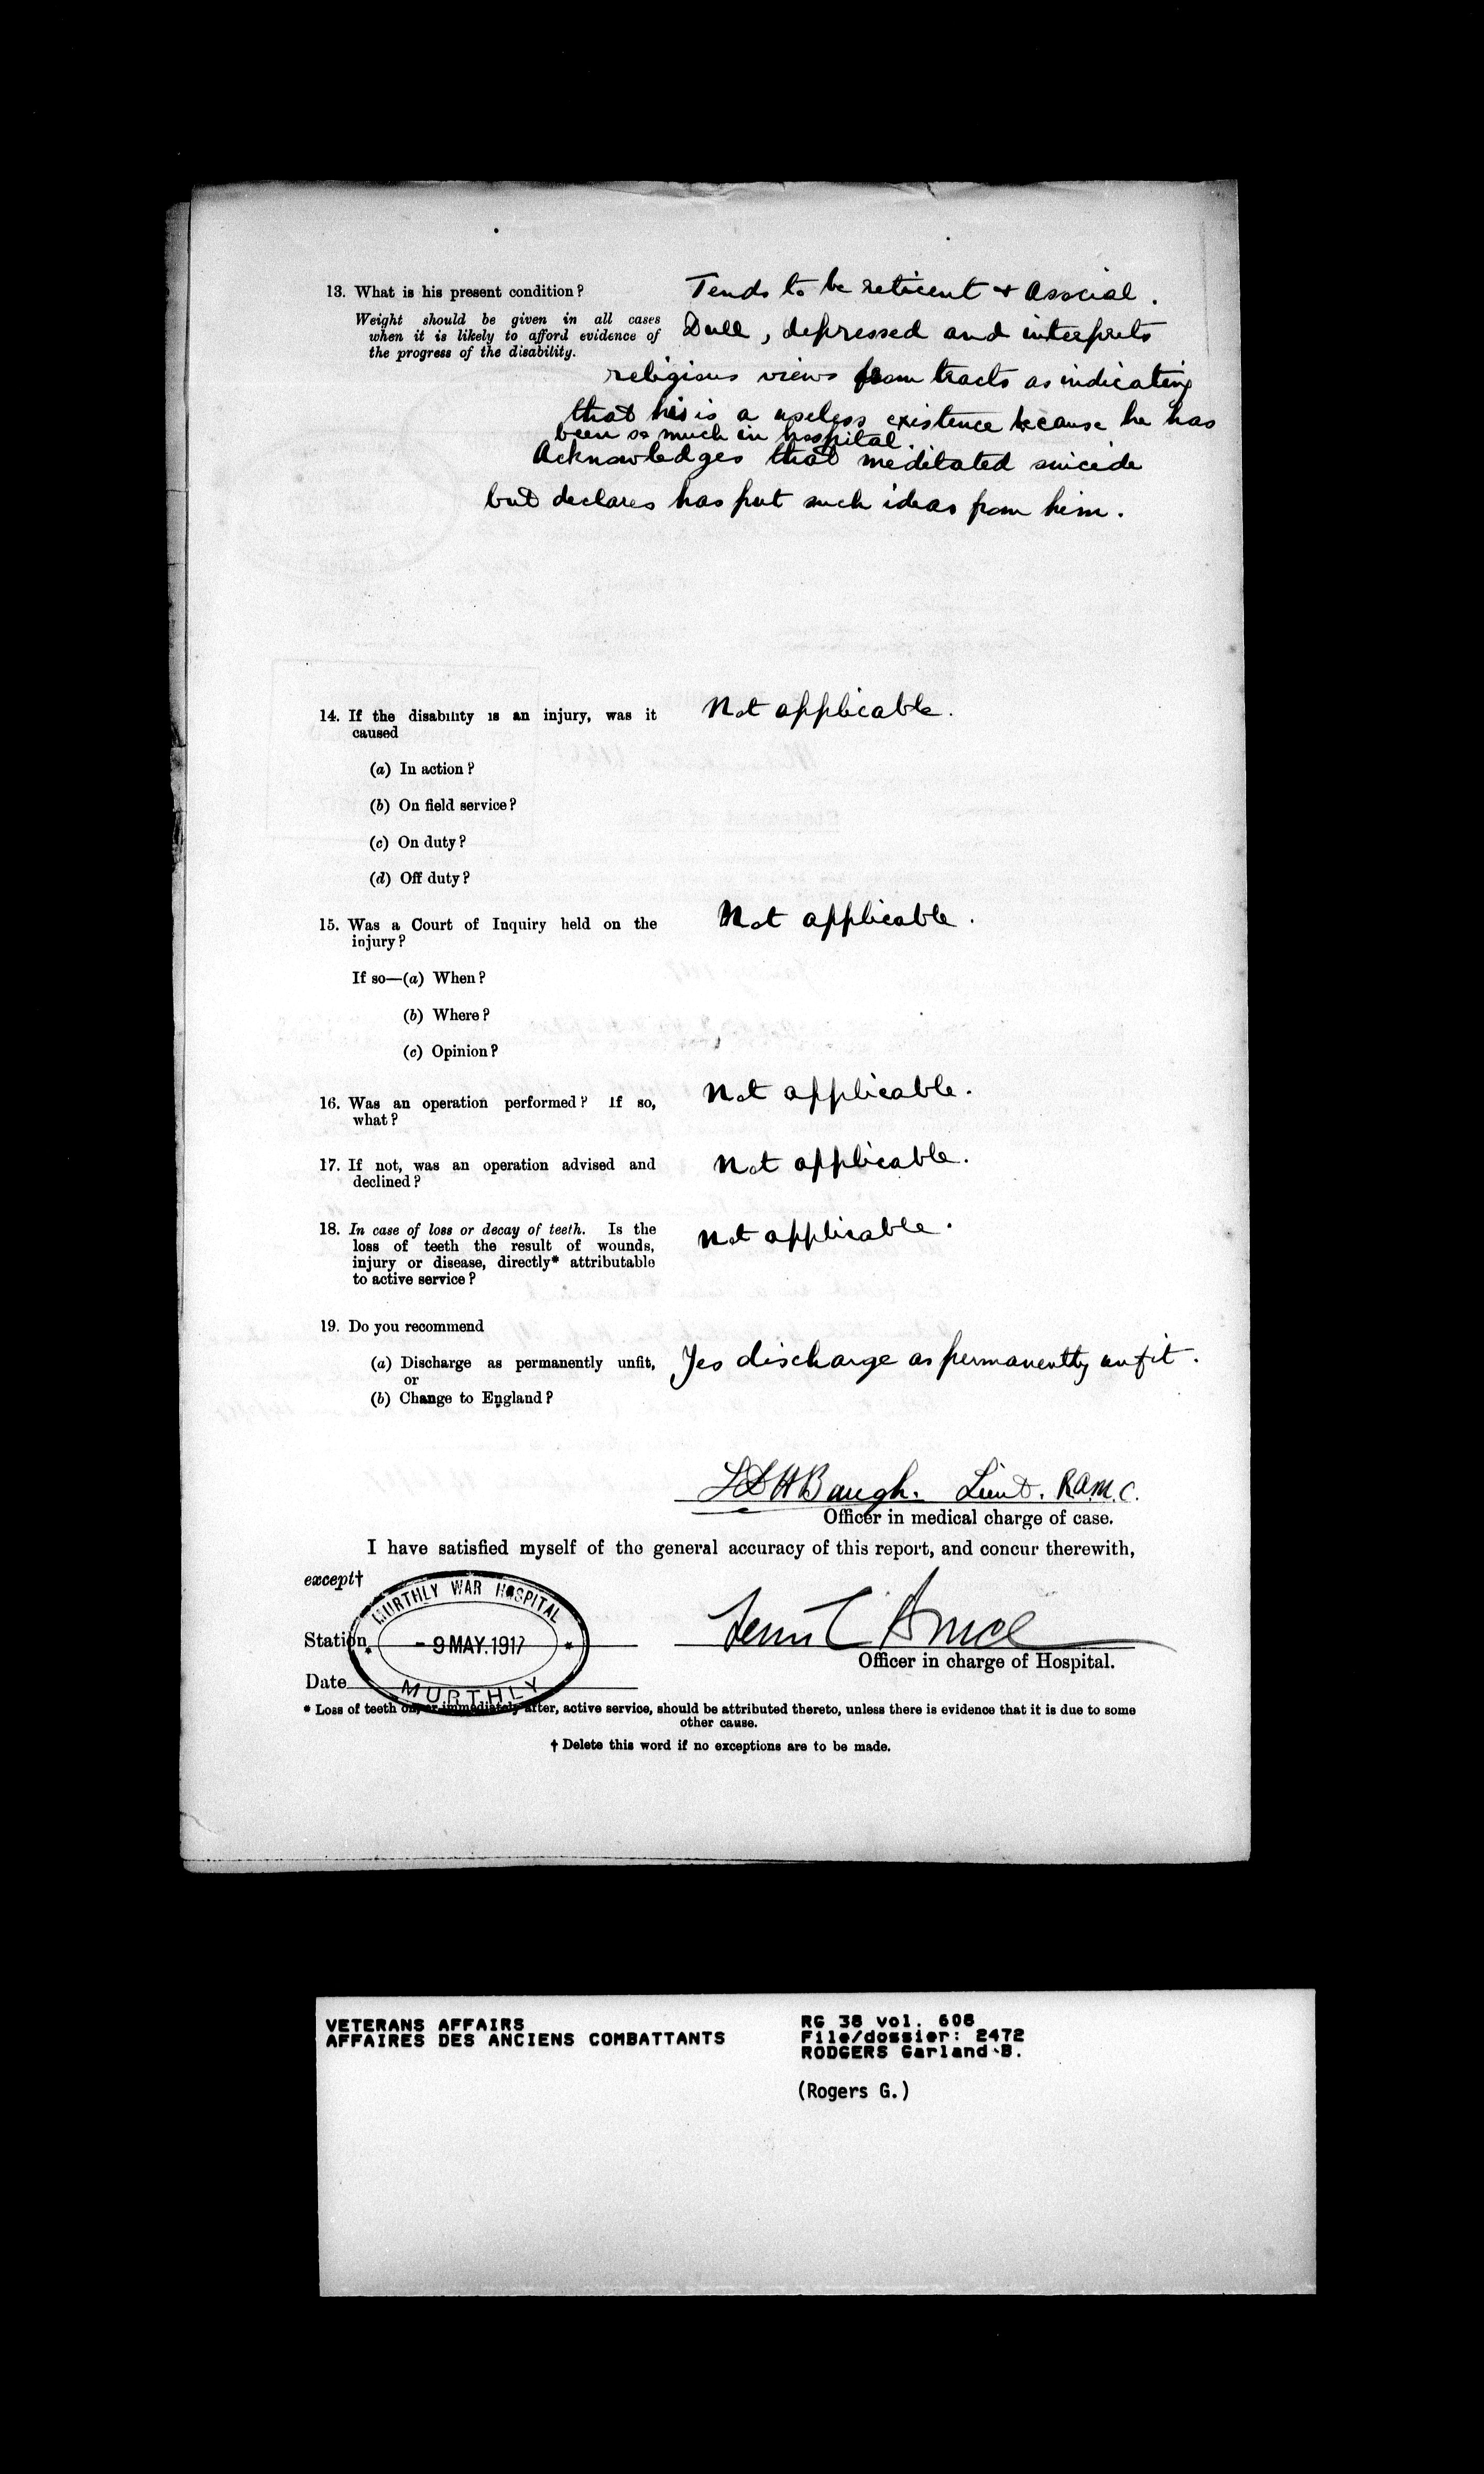 13. What is his present condition?
Weight should be given in all cases
when it is likely to afford evidence of
the progress of the disability.
Tends to be reticent & asocial.
Dull, depressed and interprets
religious views from tracts as indicating
that his is a useless existence because he has
been so much in hospital.
Acknowledges that meditated suicide
but declares has put such ideas from him.
14. If the disability is an injury, was it
caused
Not applicable.
(a) In action?
(b) On field service?
(c) On duty?
(d) Off duty?
15. Was a Court of Inquiry held on the
injury?
Not applicable.
If so—(a) When?
(b) Where?
(c) Opinion?
16. Was an operation performed? If so,
what?
Not applicable.
17. If not, was an operation advised and
declined?
Not applicable.
18. In case of loss or decay of teeth. Is the
loss of teeth the result of wounds,
injury or disease, directly* attributable
to active service?
Not applicable.
19. Do you recommend
(a) Discharge as permanently unfit,
or
(b) Change to England?
Yes discharge as permanently unfit.
Baugh. Lieut. R.A.M.C.
Officer in medical charge of case.
I have satisfied myself of the general accuracy of this report, and concur therewith,
except†
MURTHLY WAR HOSPITAL
Station
- 9 MAY. 1917
Bruce
Officer in charge of Hospital.
Date
MURTHLY
* Loss of teeth on, or immediately after, active service, should be attributed thereto, unless there is evidence that it is due to some
other cause.
† Delete this word if no exceptions are to be made.
VETERANS AFFAIRS
AFFAIRES DES ANCIENS COMBATTANTS
RG 38 vol. 608
File/dossier: 2472
RODGERS Garland B.
(Rogers G.)